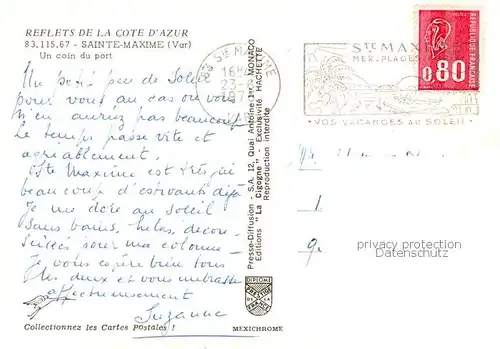 REFLETS DE LA COTE D'AZUR
83.115.67 - SAINTE-MAXIME (Var)
Un coin du port
Un petit peu de Soleil
pour vous au cas ou vous
n'en auriez pas beaucoup
Le temps passe vite et
agréablement.
Ste Maxime est très
beaucoup d'estivants déjà
Je me dore au soleil
sans bains, hélas,
ma colonne
Je vous espère bien tous
les deux et vous
affectueusement
Suzanne
Collectionnez les Cartes Postales !
MEXICHROME
Presse-Diffusion - S.A. 12, Quai Antoine 1er - MONACO
Editions "La Cigogne" - Exclusivité HACHETTE
Reproduction interdite
DIPLOME
PRESTIGE
DE LA
FRANCE
83 STE MAXIME
STE MAX
MER. PLAGES
VOS VACANCES AU SOLEIL
REPUBLIQUE FRANÇAISE
0,80
privacy protection
Datenschutz